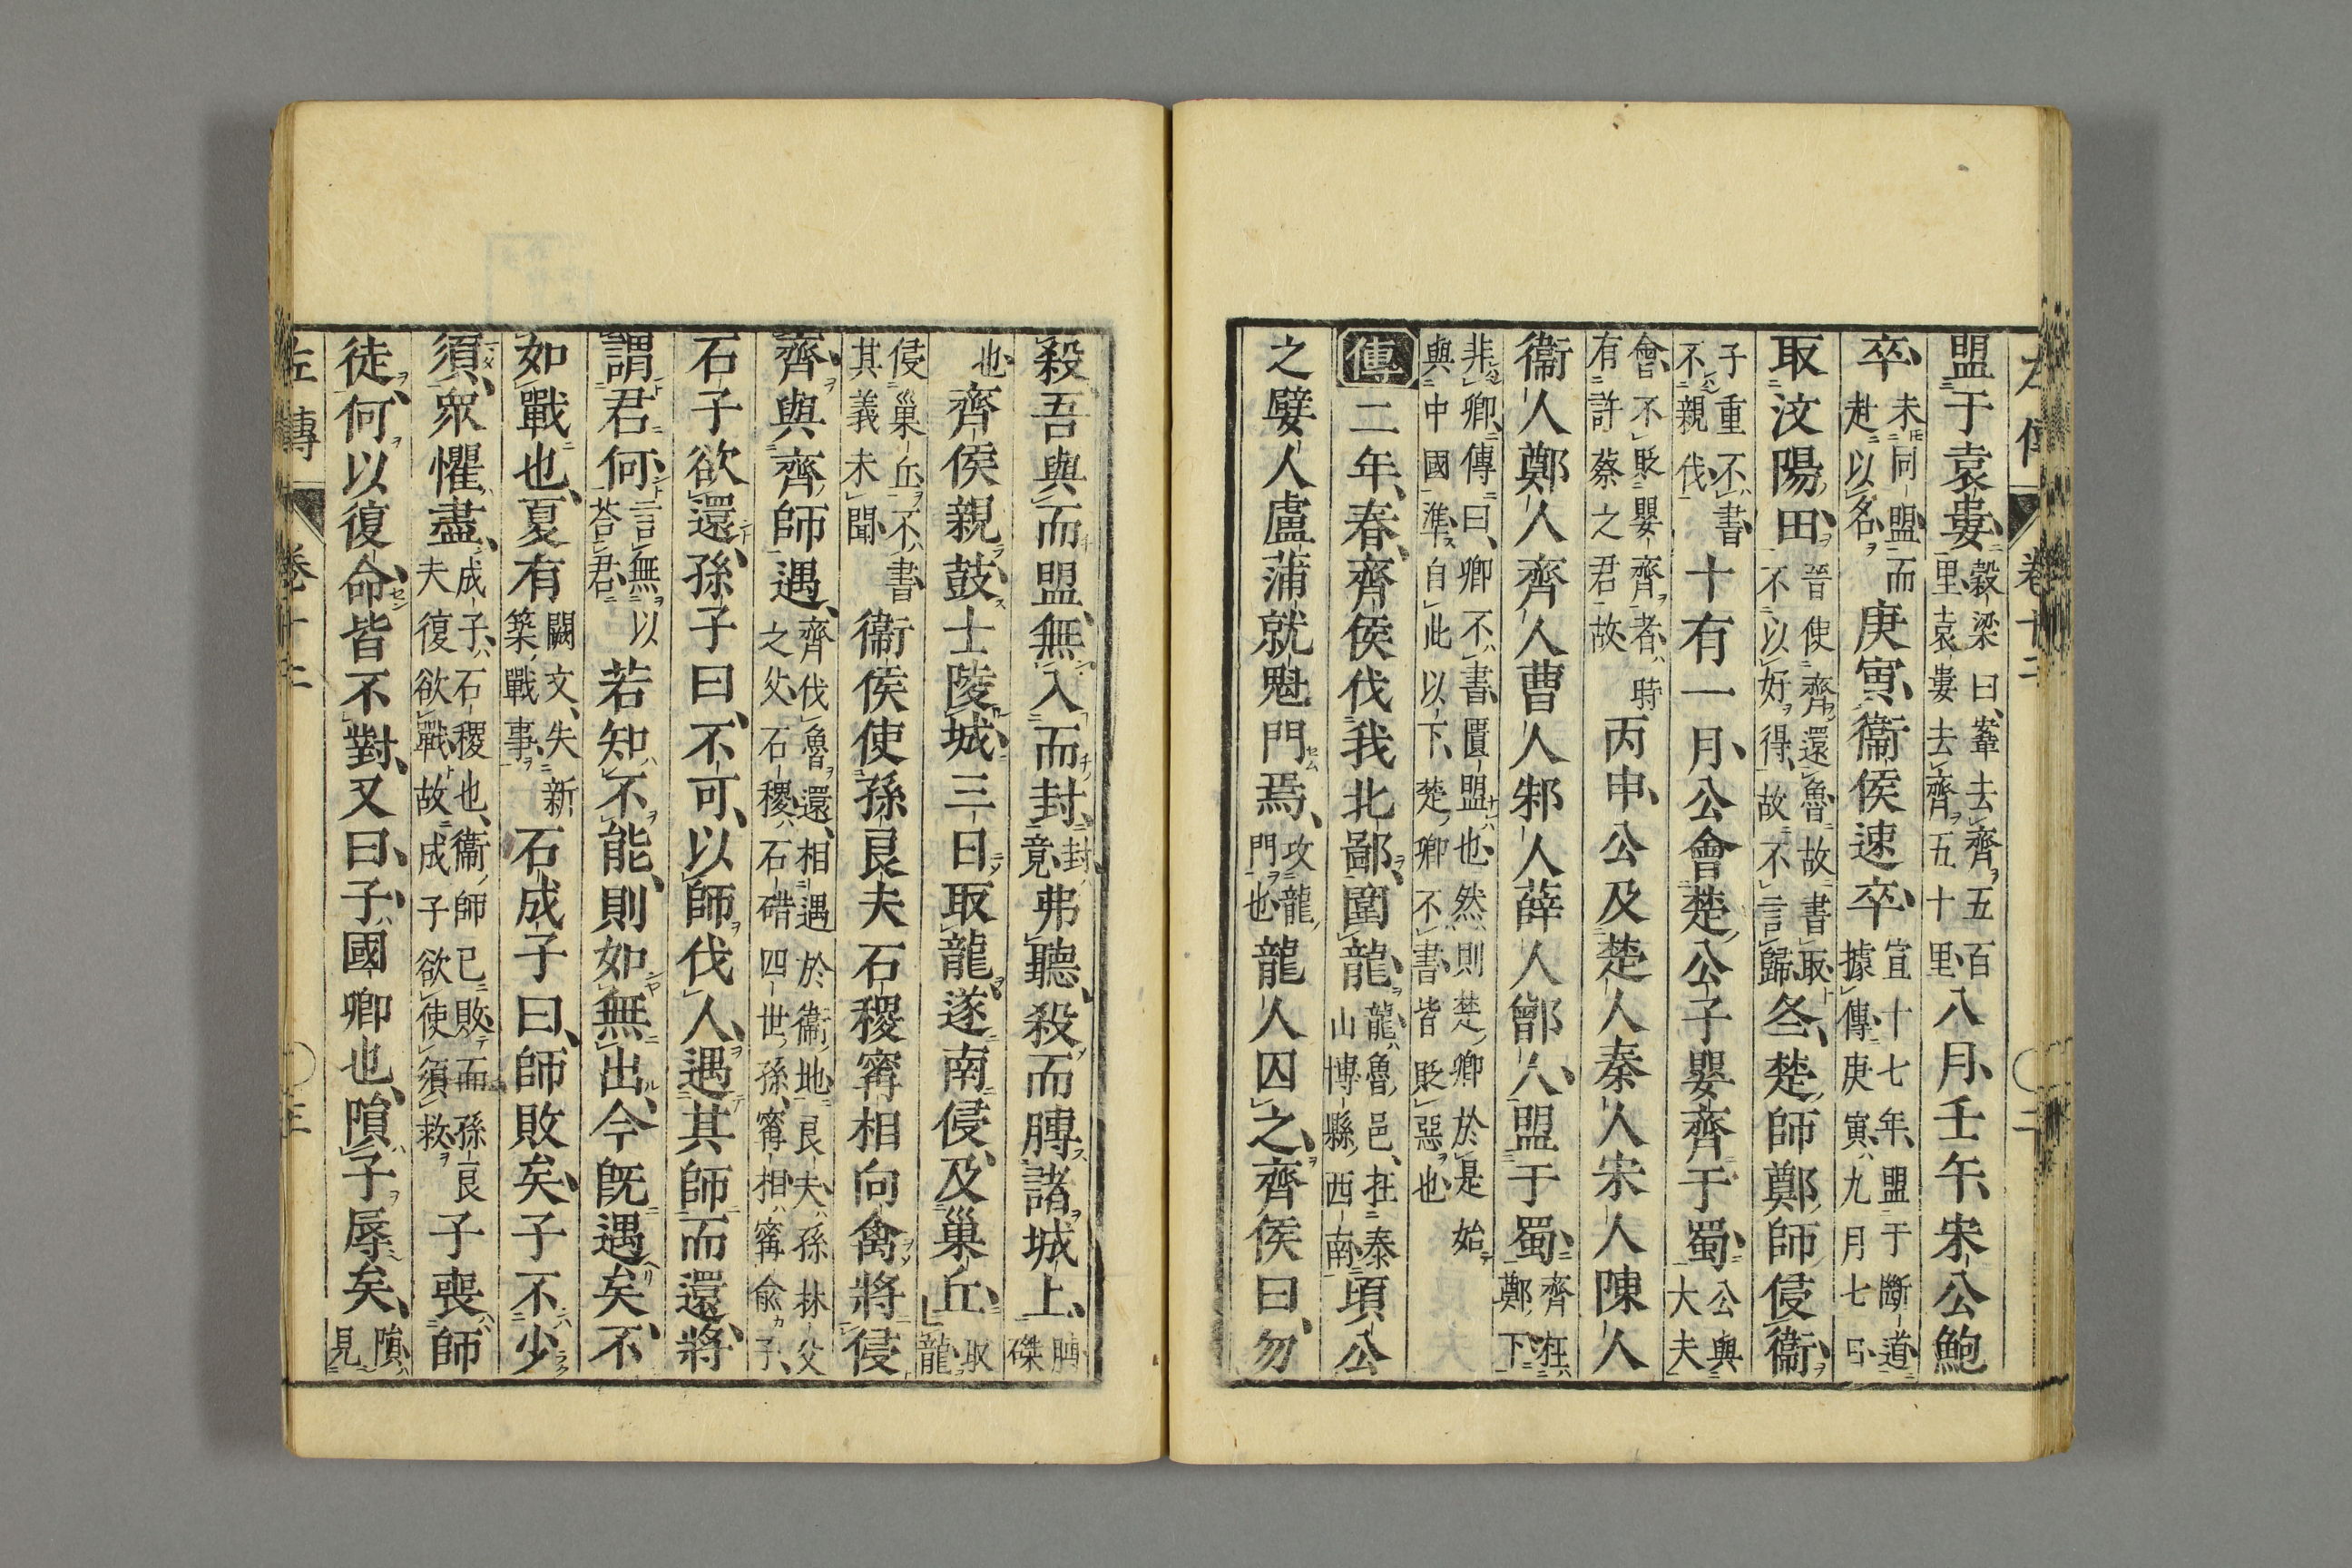 左傳 卷十二 〇二
盟于袁婁、穀梁曰、鞌去齊五百里、袁婁去齊五十里、八月、壬午、宋公鮑
卒、未同盟而赴以名、庚寅、衞侯速卒、宣十七年、盟于斷道、據傳、庚寅、九月七日、
取汶陽田、晉使齊還魯、故書取、不以好得、故不言歸、冬、楚師鄭師侵衞、
子重不書、不親伐、十有一月、公會楚公子嬰齊于蜀、公與大夫
會、不貶嬰齊者、時有許蔡之君故、丙申、公及楚人秦人宋人陳人
衞人鄭人齊人曹人邾人薛人鄫人、盟于蜀、齊在鄭下、
非卿、傳曰、卿不書、匱盟也、然則楚卿於是始與中國準、自此以下、楚卿不書、皆貶惡也、
傳二年、春、齊侯伐我北鄙、圍龍、龍、魯邑、在泰山博縣西南、頃公
之嬖人盧蒲就魁門焉、攻龍門也、龍人囚之、齊侯曰、勿
殺、吾與而盟、無入而封、封、竟、弗聽、殺而膊諸城上、膊磔
也、齊侯親鼓、士陵城、三日取龍、遂南侵、及巢丘、取龍
侵巢丘、不書、其義未聞、衞侯使孫良夫石稷甯相向禽將侵
齊、與齊師遇、齊伐魯還、相遇於衞地、良夫、孫林父之父、石稷、石碏四世孫、甯相、甯俞子、
石子欲還、孫子曰、不可、以師伐人、遇其師而還、將
謂君何、言無以荅君、若知不能、則如無出、今既遇矣、不
如戰也、夏有闕文、失新築戰事、石成子曰、師敗矣、子不少
須、衆懼盡、成子、石稷也、衞師已敗、而孫良夫復欲戰、故成子欲使須救、子喪師
徒、何以復命、皆不對、又曰、子、國卿也、隕子辱矣、隕見
左傳 卷十二 〇三